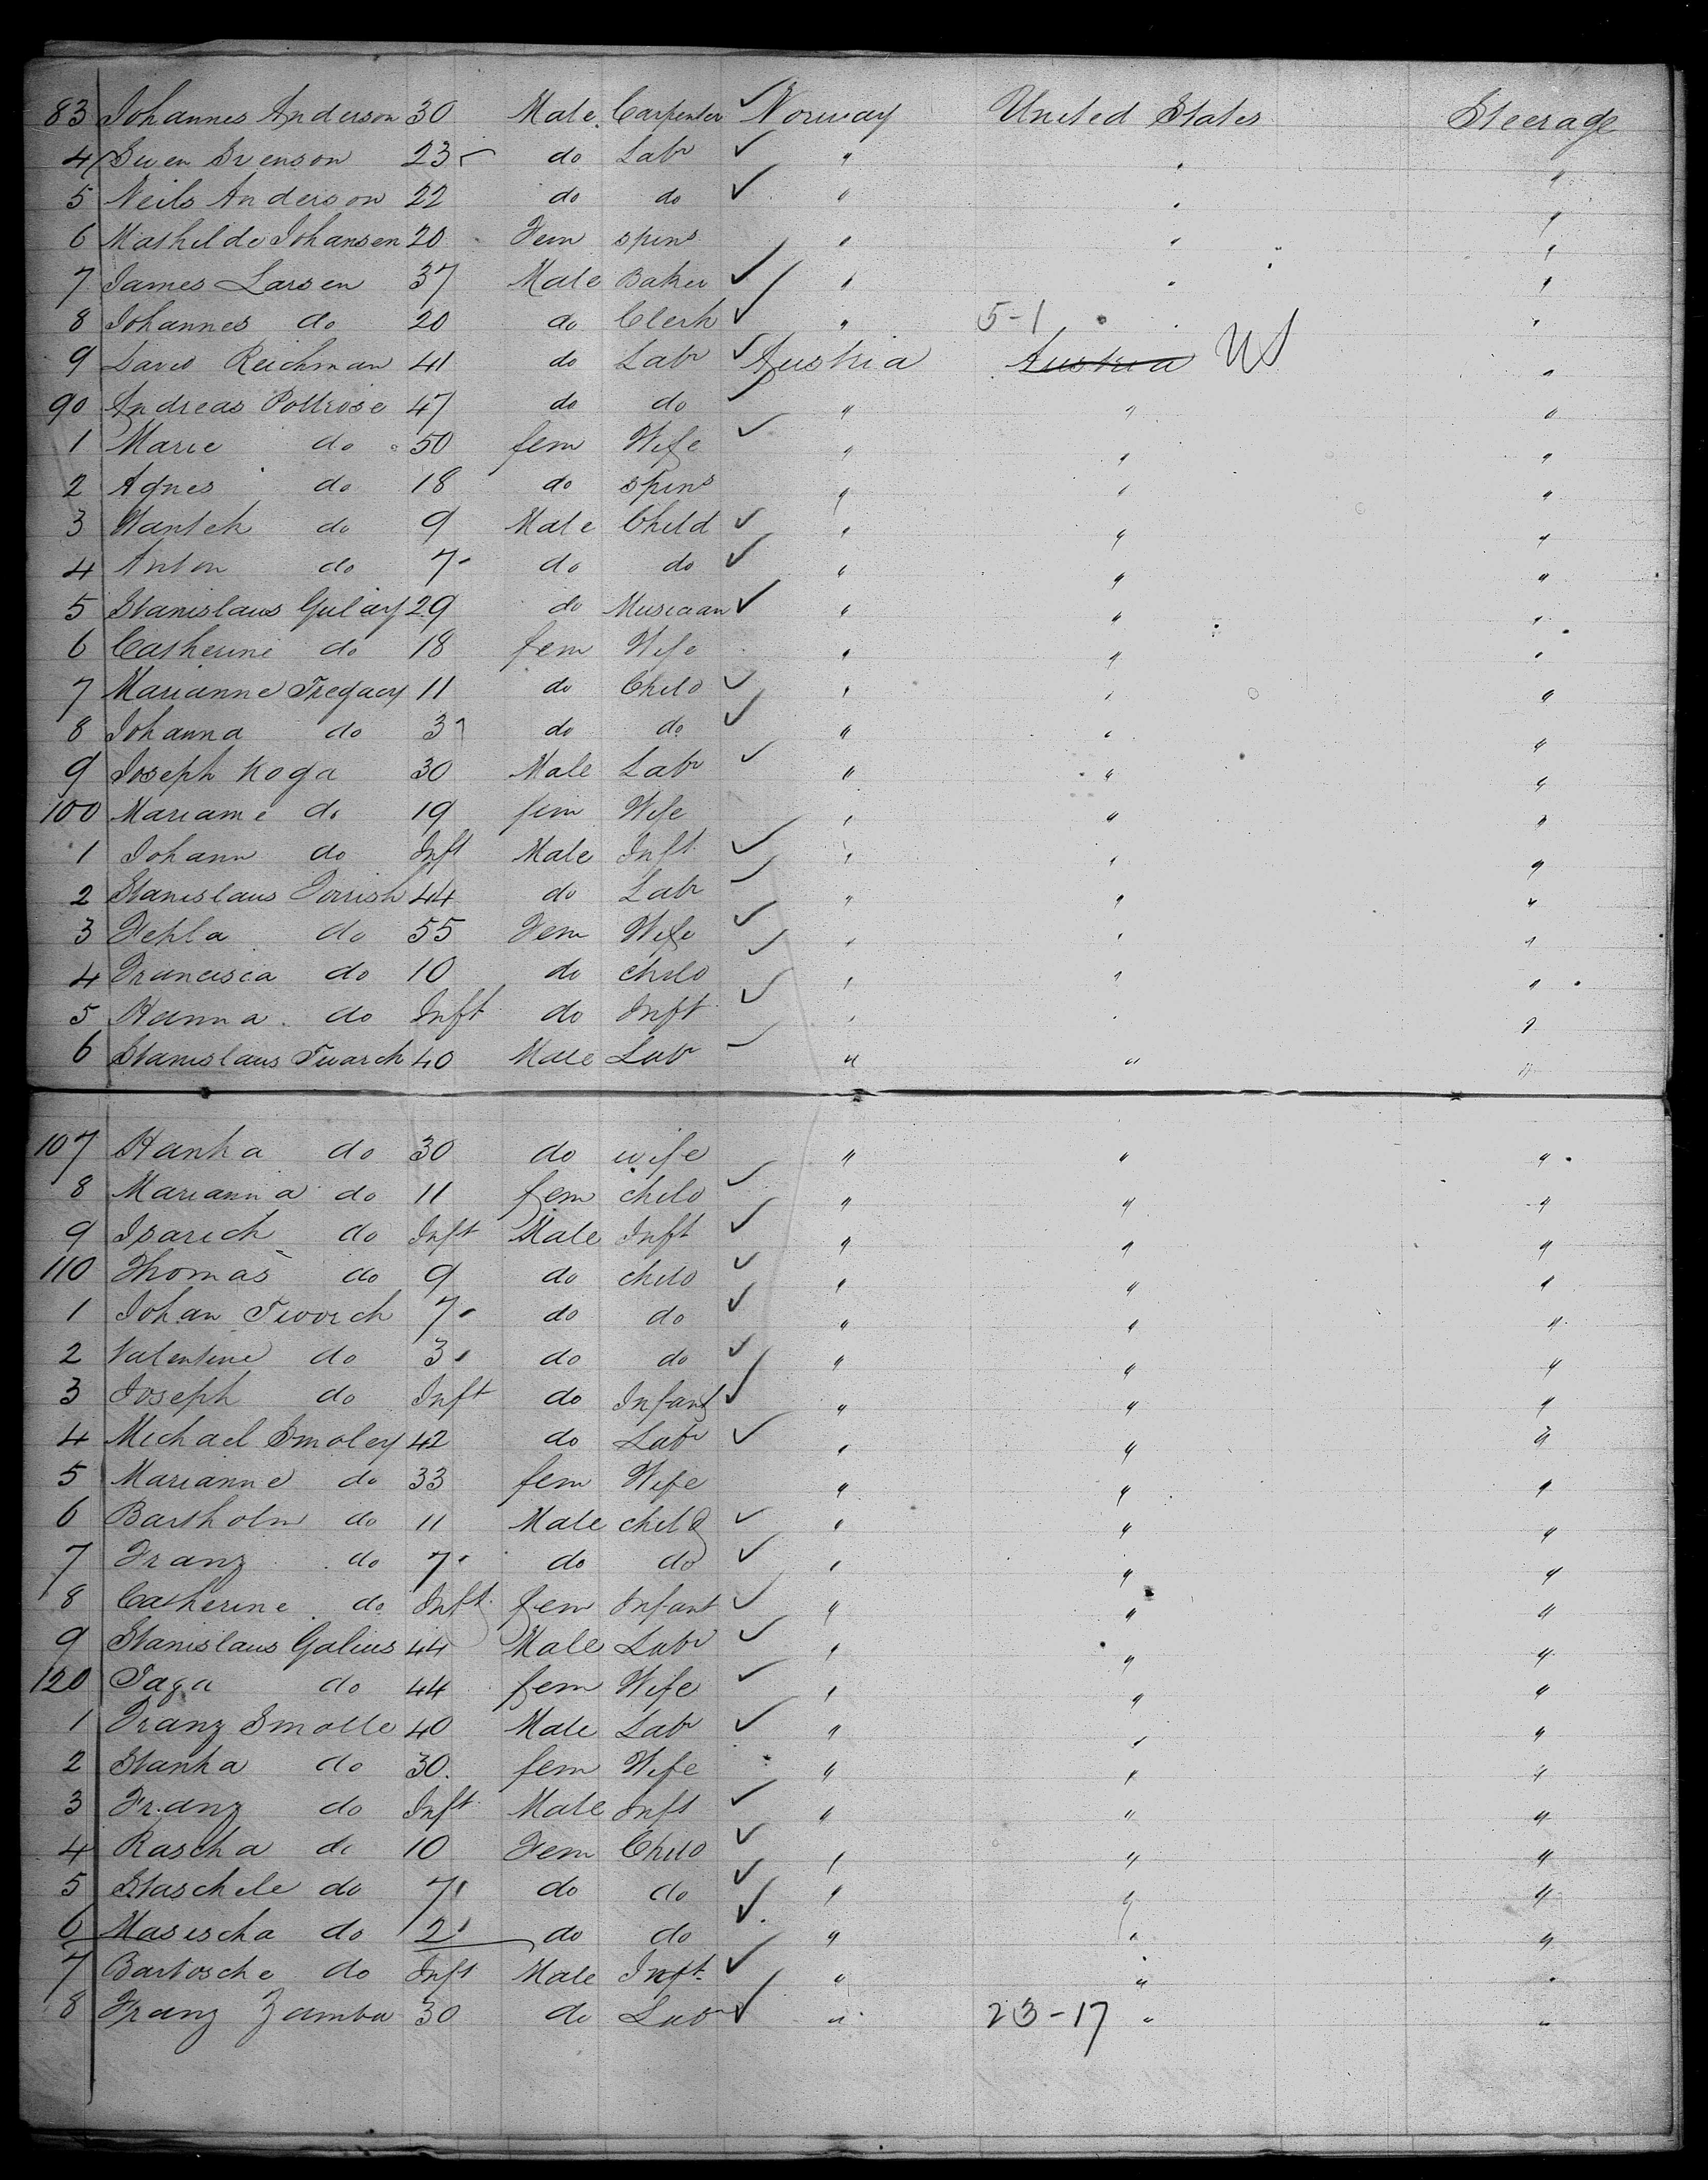 83 Johannes Anderson 30 Male Carpenter ✓ Norway United States Steerage
4 Swen Svenson 23 do Labr ✓ " " "
5 Neils Anderson 22 do do ✓ " " "
6 Mathilde Johansen 20 Fem spins " " "
7 James Larsen 37 Male Baker ✓ " " "
8 Johannes do 20 do Clerk ✓ " 5-1 " "
9 David Reichman 41 do Labr ✓ Austria Austria US "
90 Andreas Poltrose 47 do do ✓ " " "
1 Marie do 50 fem Wife ✓ " " "
2 Agnes do 18 do spins " " "
3 Wantek do 9 Male Child ✓ " " "
4 Anton do 7 do do ✓ " " "
5 Stanislaus Gulay 29 do Musician ✓ " " "
6 Catherine do 18 fem Wife " " "
7 Marianne Tregacy 11 do Child ✓ " " "
8 Johanna do 3 do do ✓ " " "
9 Joseph Koga 30 Male Labr ✓ " " "
100 Mariame do 19 fem Wife " " "
1 Johann do Inft Male Inft ✓ " " "
2 Stanislaus 44 do Labr ✓ " " "
3 Tekla do 55 Fem Wife ✓ " " "
4 Francisca do 10 do child ✓ " " "
5 Hanna do Inft do Inft ✓ " " "
6 Stanislaus Twarch 40 Male Labr ✓ " " "
107 Hanka do 30 do wife " " "
8 Marianna do 11 fem child ✓ " " "
9 Isarich do Inft Male Inft ✓ " " "
110 Thomas do 9 do child ✓ " " "
1 Johan Tworch 7 do do ✓ " " "
2 Valentine do 3 do do ✓ " " "
3 Joseph do Inft do Infant ✓ " " "
4 Michael Smoley 42 do Labr ✓ " " "
5 Marianne do 33 fem Wife " " "
6 Bartholm do 11 Male child ✓ " " "
7 Franz do 7 do do ✓ " " "
8 Catherine do Inft fem Infant ✓ " " "
9 Stanislaus Galius 44 Male Labr ✓ " " "
120 Taga do 44 fem Wife ✓ " " "
1 Franz Smolle 40 Male Labr ✓ " " "
2 Stanka do 30 fem Wife " " "
3 Franz do Inft Male Inft ✓ " " "
4 Rascha do 10 Fem Child ✓ " " "
5 Staschele do 7 do do ✓ " " "
6 Masischa do 2 do do ✓ " " "
7 Bartosche do Inft Male Inft ✓ " " "
8 Franz Zamba 30 do Labr ✓ " 23-17 " "